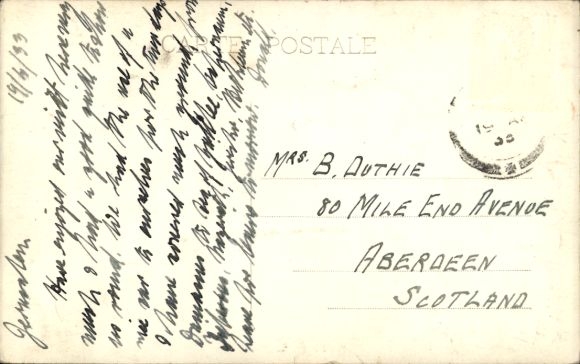 CARTE POSTALE
Jerusalem 19/4/33
Have enjoyed our visit here very
much & had a good guide to show
us round. We had the use of a
nice car to ourselves for the two days
& have covered much ground, from
Damascus to Sea of Galilee,
Nazareth, Bethlehem etc.
Leave for
19 AP
33
MRS. B. DUTHIE
80 MILE END AVENUE
ABERDEEN
SCOTLAND